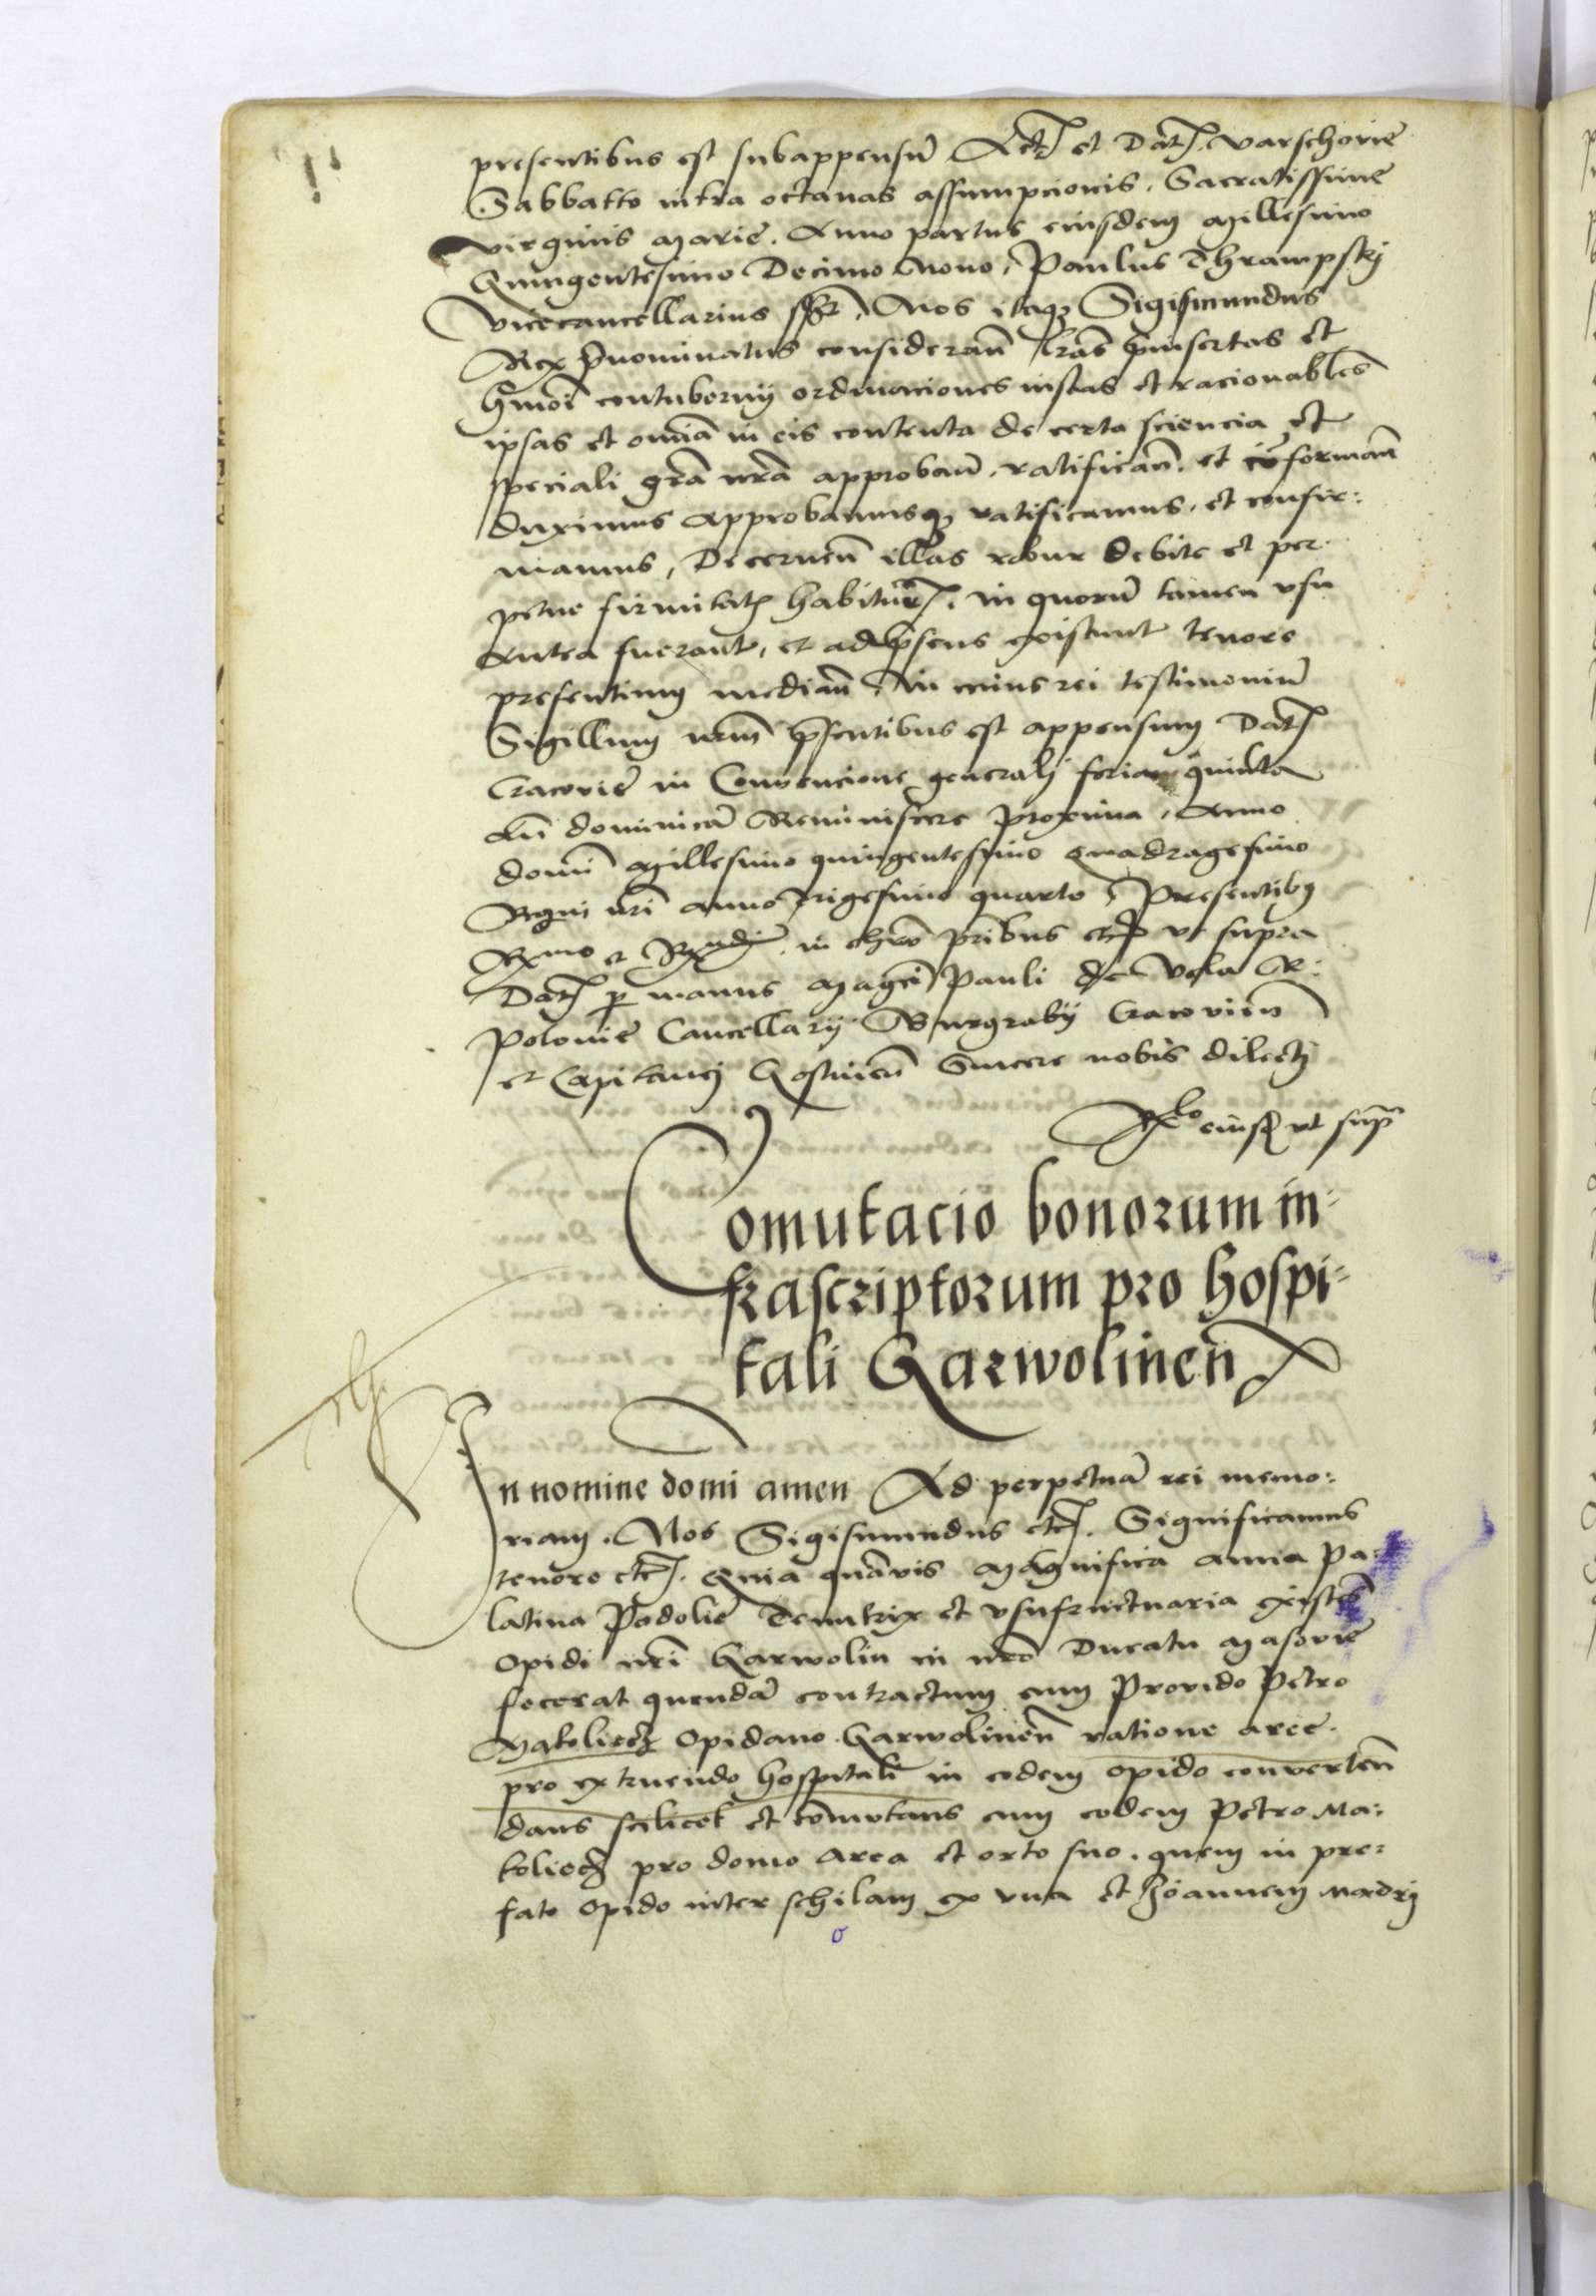 presentibus est subappensũ Act et Dat varschovie
Sabbatto intra octavas assumpcionis. Sacratissime
virginis Marie. Anno partus eiusdem Millesimo
Quingentesimo Decimo Nono, Paulus Chrampskj
vicecancellarius sspt, Nos itaq3 Sigismundus
Rex p̃nominatus considerañ lr̃as p̃insertas et
hm̃oi contubernij ordinaciones iustas et racionables
ipsas et omnia in eis contenta de certa sciencia et
speciali gr̃a nr̃a approbañ. ratificañ. et cõformañ
duximus Approbamusq3 ratificamus. et confir:
mamus, Decerneñ illas robur debite et per
petue firmitat habitur. in quorũ tamen vsu
antea fuerant, et ad p̃sens existunt tenore
presentium mediañ, In cuius rei testimoniũ
Sigillum nrm̃ p̃sentibus est appensum Dat
Cracovie in Convencione generalj feria quinta
añ dominicã Reminiscere proxima, Anno
domi Millesimo quingentesimo quadragesimo
Regni nr̃i anno trigesimo quarto, Presentibus
Rmo et Rndis in chr̃o pr̃ibus etc ut supra
Dat p manus Magci Pauli de Vola R:
Polonie Cancellarij Burgrabij Cracovieñ
et Capitanej Gostinẽn Sincere nobis dilectj
Rlo eiusd ut supr̃
Comutacio bonorum in-
frascriptorum pro hospi-
tali Garwolineñ
In nomine domi amen Ad perpetuã rei memo:
riam. Nos Sigismundus etc. Significamus
tenore etc. Quia quãvis Magnifica Anna Pa:
latina Podolie Tenutrix et vsufructuaria existeñ
Opidi nr̃i Garwolin in nr̃o Ducatu Masovie
fecerat quendã contractum cum Provido Petro
Matoliecz Opidano Garwolineñ ratione aree
pro extruendo hospitali in eodem opido converteñ
dans scilicet et cõmutans cum eodem Petro Ma:
toliecz pro domo Area et orto suo. quem in pre:
fato Opido inter scholam ex vna et Joannem Madrij